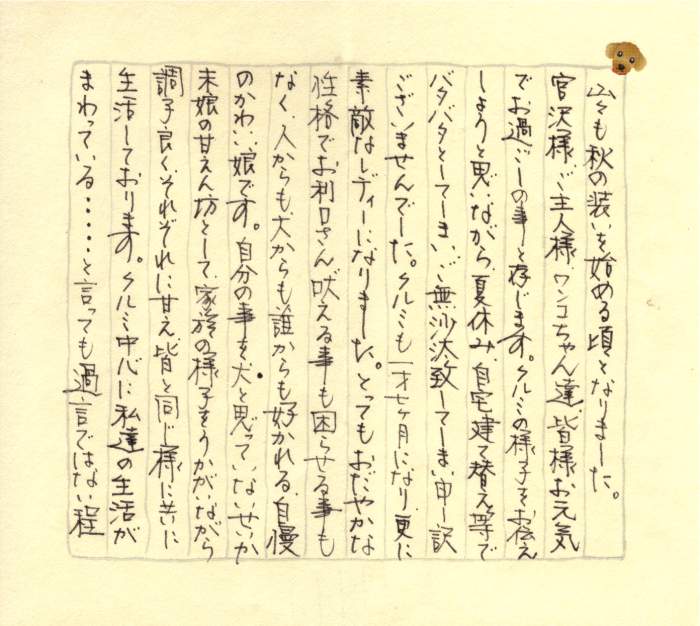 山々も秋の装いを始める頃となりました。
宮沢様、ご主人様、ワンコちゃん達、皆様お元気
でお過ごしの事と存じます。クルミの様子をお伝え
しようと思いながら、夏休み、自宅建て替え等で
バタバタとしてしまい、ご無沙汰致してしまい申し訳
ございませんでした。クルミも一才七ヶ月になり、更に
素敵なレディーになりました。とってもおだやかな
性格でお利口さん、吠える事も困らせる事も
なく、人からも犬からも誰からも好かれる、自慢
のかわいい娘です。自分の事を犬と思っていないせいか
末娘の甘えん坊として、家族の様子をうかがいながら
調子良くそれぞれに甘え、皆と同じ様に共に
生活しております。クルミ中心に私達の生活が
まわっている・・・・・と言っても過言ではない程